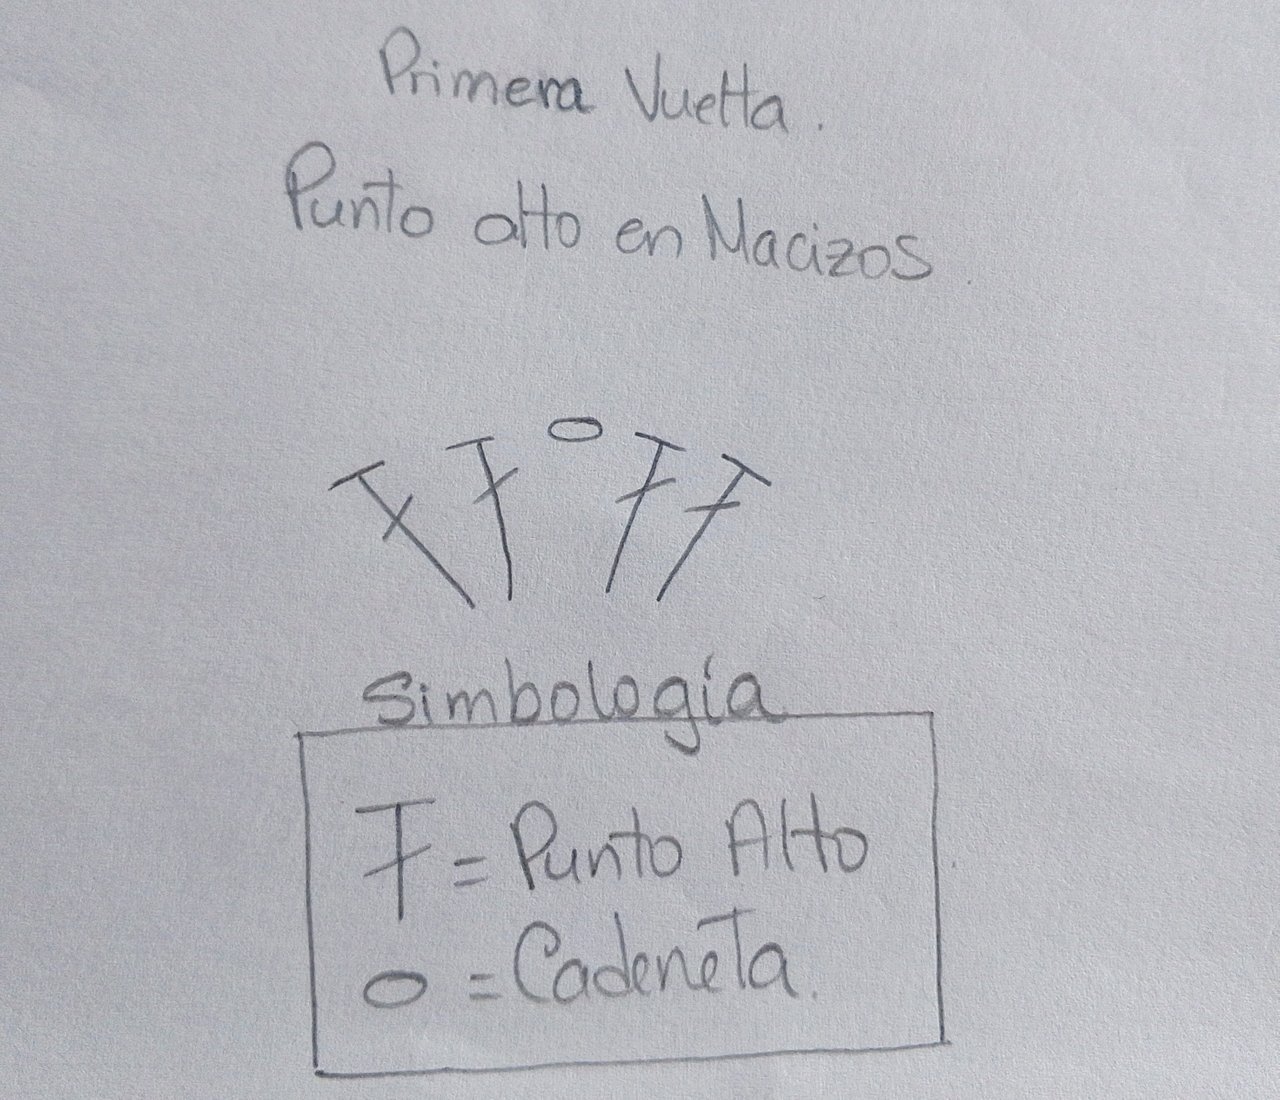 Primera Vuelta.
Punto alto en Macizos
Simbología
= Punto Alto
= Cadeneta.